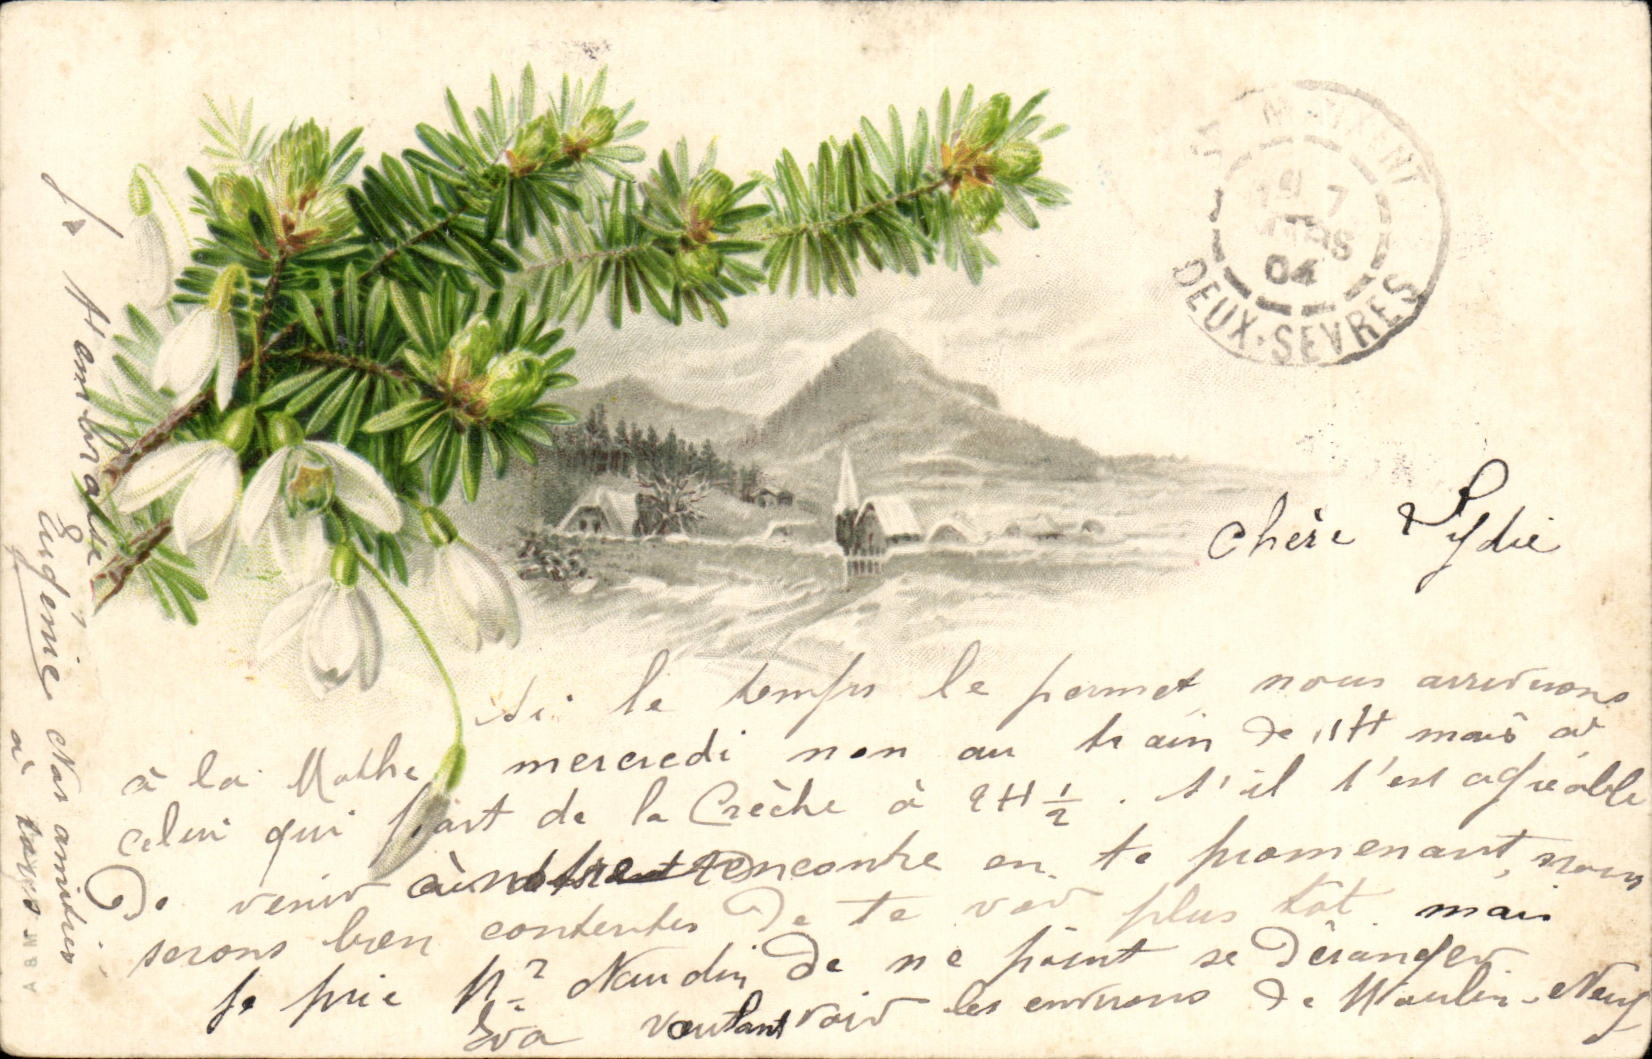 St MAIXENT
DEUX-SEVRES
7
MARS
04
Chère Lydie
Si le temps le permet nous arriverons
à la Mothe mercredi non au train de 11H mais à
celui qui part de la Crèche à 2H 1/2. S'il t'est agréable
de venir à notre rencontre en te promenant, nous
serons bien contentes de te voir plus tôt mais
je prie Mr Naudin de ne point se déranger
Eva voulant voir les environs de Moulin-Neuf
Je t'embrasse
Eugénie
Nos amitiés
à tous
A & M B